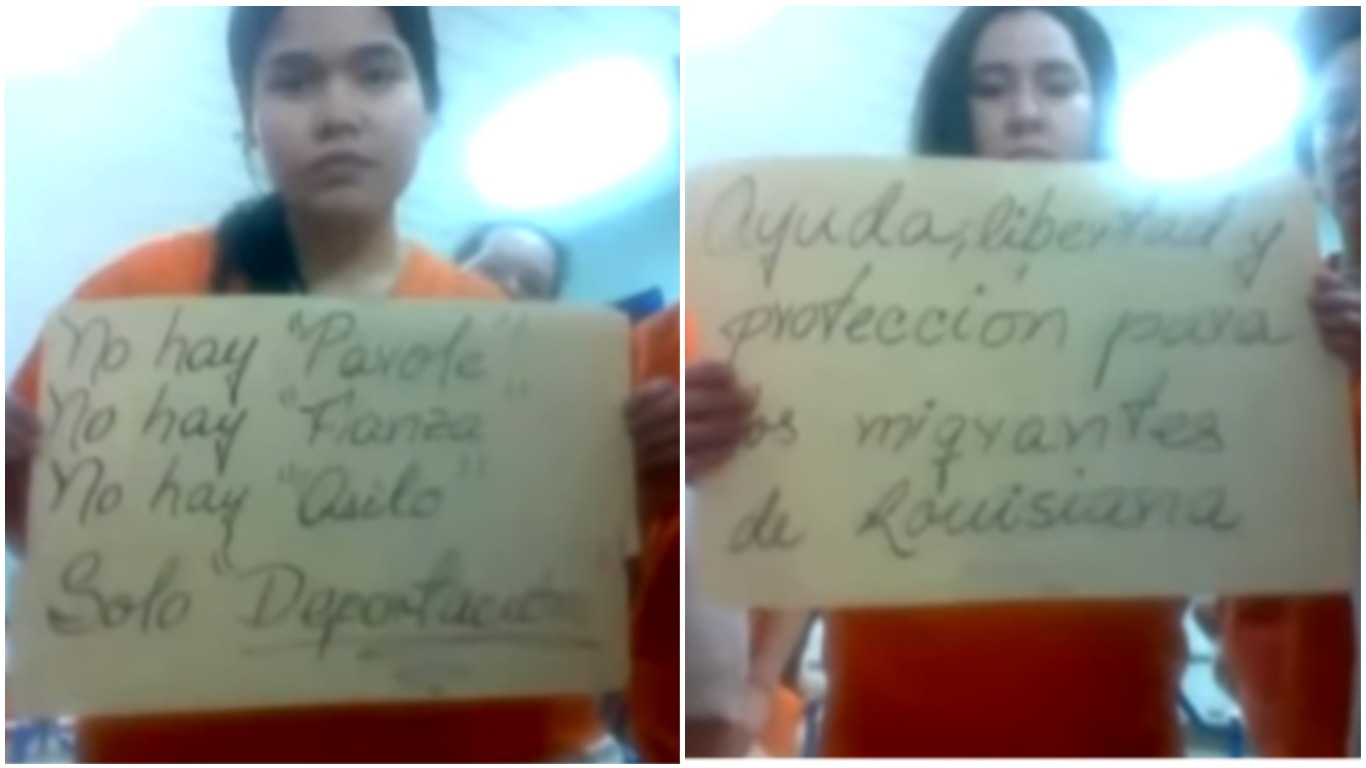 No hay "Parole"
No hay "Fianza"
No hay "Asilo"
Solo "Deportación
Ayuda, libertad y
protección para
los migrantes
de Louisiana